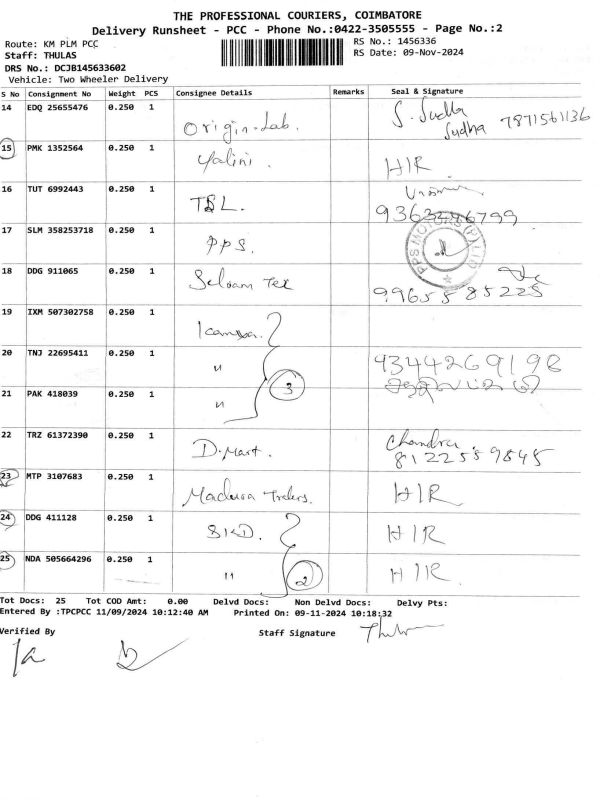 THE PROFESSIONAL COURIERS, COIMBATORE
Delivery Runsheet - PCC - Phone No.:0422-3505555 - Page No.:2
Route: KM PLM PCC
RS No.: 1456336
Staff: THULAS
RS Date: 09-Nov-2024
DRS No.: DCJB145633602
Vehicle: Two Wheeler Delivery
S No Consignment No Weight PCS Consignee Details Remarks Seal & Signature
14 EDQ 25655476 0.250 1 Origin Lab. S. Sudha
Sudha 7871561136
15 PMK 1352564 0.250 1 Yalini. HIR.
16 TUT 6992443 0.250 1 TSL.
17 SLM 358253718 0.250 1 PPS. PPS MOTORS (P) LTD
18 DDG 911065 0.250 1 Selvam Tex
9965585225
19 IXM 507302758 0.250 1
20 TNJ 22695411 0.250 1 " 4344269198
21 PAK 418039 0.250 1 " 3
22 TRZ 61372390 0.250 1 D. Mart. Chandru.
8122559845
23 MTP 3107683 0.250 1 Madura Traders. HIR
24 DDG 411128 0.250 1 SKD. HIR
25 NDA 505664296 0.250 1 " 2 HIR
Tot Docs: 25 Tot COD Amt: 0.00 Delvd Docs: Non Delvd Docs: Delvy Pts:
Entered By :TPCPCC 11/09/2024 10:12:40 AM Printed On: 09-11-2024 10:18:32
Verified By Staff Signature